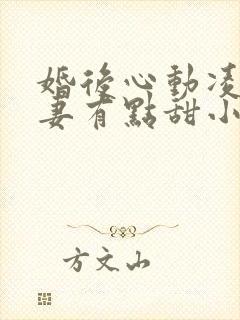 婚後心動凌
妻有點甜小
方文山